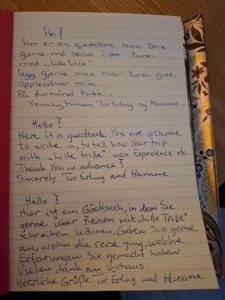 Hei!
Her er en gjestebok som Dere
gjerne må skrive i om turen
med "Lille Trille"
Legg gjerne med hvor turen gikk.
Opplevelser m.m.
På forhånd takk.
Vennlig hilsen Tor Erling og Marianne
Hello!
Here is a guestbook. You are welcome
to write in, to tell how your trip
with "Lille Trille" was. Experience etc.
Thank You in advance!
Sincerely Tor Erling and Marianne
Hallo!
Hier ist ein Gästbuch, in dem Sie
gerne über Reisen mit "Lille Trille"
schreiben können. Geben Sie gerne
an, wohin die reise ging, welche
Erfahrungen Sie gemacht haben.
Vielen dank am Vorhaus.
Herzliche Grüße Tor Erling und Marianne